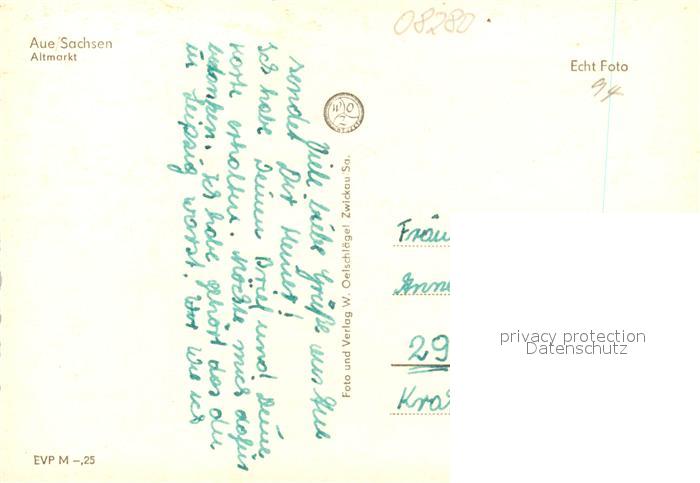 Aue/Sachsen
Altmarkt
08280
Echt Foto
94
Viele liebe Grüße aus Aue
sendet Dir Heiner!
Ich habe Deinen Brief und Deine
Karte erhalten. Möchte mich dafür
bedanken. Ich habe gehört das du
in Leipzig warst. Wie ich
Foto und Verlag W. Oelschlägel Zwickau Sa.
Fräu
Anne
29
Kra
privacy protection
Datenschutz
EVP M -,25